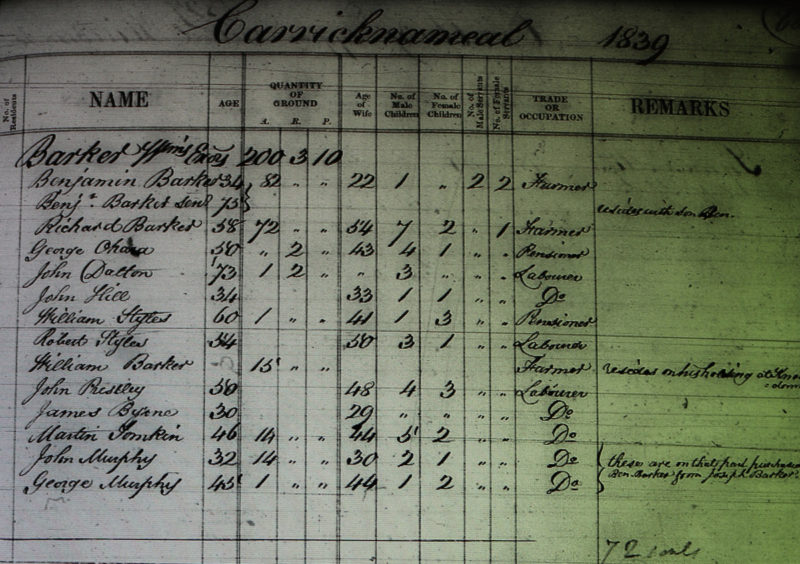 Carricknameal 1839
No. of Residents NAME AGE QUANTITY OF GROUND A. R. P. Age of Wife No. of Male Children No. of Female Children No. of Male Servants No. of Female Servants TRADE OR OCCUPATION REMARKS
Barker Wm's Exors 200 3 10
Benjamin Barker 34 82 " " 22 1 " 2 2 Farmer
Benjn Barker Senr 75 resides with son Ben.
Richard Barker 58 72 " " 54 7 2 " 1 Farmer
George Ohara 50 " 2 " 43 4 1 " " Pensioner
John Dalton 73 1 2 " " 3 " " Labourer
John Hill 34 33 1 1 " " Do
William Styles 60 1 " " 41 1 3 " " Pensioner
Robert Styles 54 50 3 1 " " Labourer
William Barker 15 " " Farmer resides on his holding at
John Pristley 50 48 4 3 " " Labourer
James Byrne 30 29 " " " " Do
Martin Tomkin 46 14 " " 44 5 2 " " Do
John Murphy 32 14 " " 30 2 1 " " Do these are on that part purchased
George Murphy 45 1 " " 44 1 2 " " Do Ben. Barker from Joseph Barker
72 souls